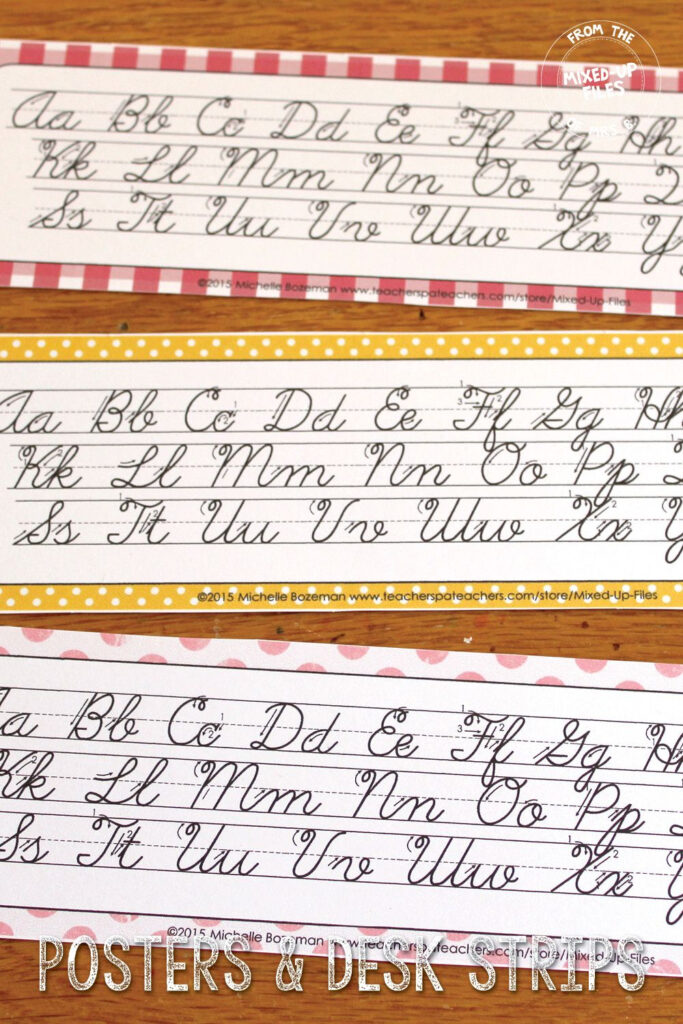 FROM THE
MIXED-UP
FILES
Aa Bb Cc Dd Ee Ff Gg Hh
Kk Ll Mm Nn Oo Pp Q
Ss Tt Uu Vv Ww Xx Yy
©2015 Michelle Bozeman www.teacherspayteachers.com/store/Mixed-Up-Files
Aa Bb Cc Dd Ee Ff Gg Hh
Kk Ll Mm Nn Oo Pp
Ss Tt Uu Vv Ww Xx
©2015 Michelle Bozeman www.teacherspateachers.com/store/Mixed-Up-Files
a Bb Cc Dd Ee Ff Gg Hh
Kk Ll Mm Nn Oo Pp
Ss Tt Uu Vv Ww Xx
©2015 Michelle Bozeman www.teacherspateachers.com/store/Mixed-Up-Files
POSTERS & DESK STRIPS